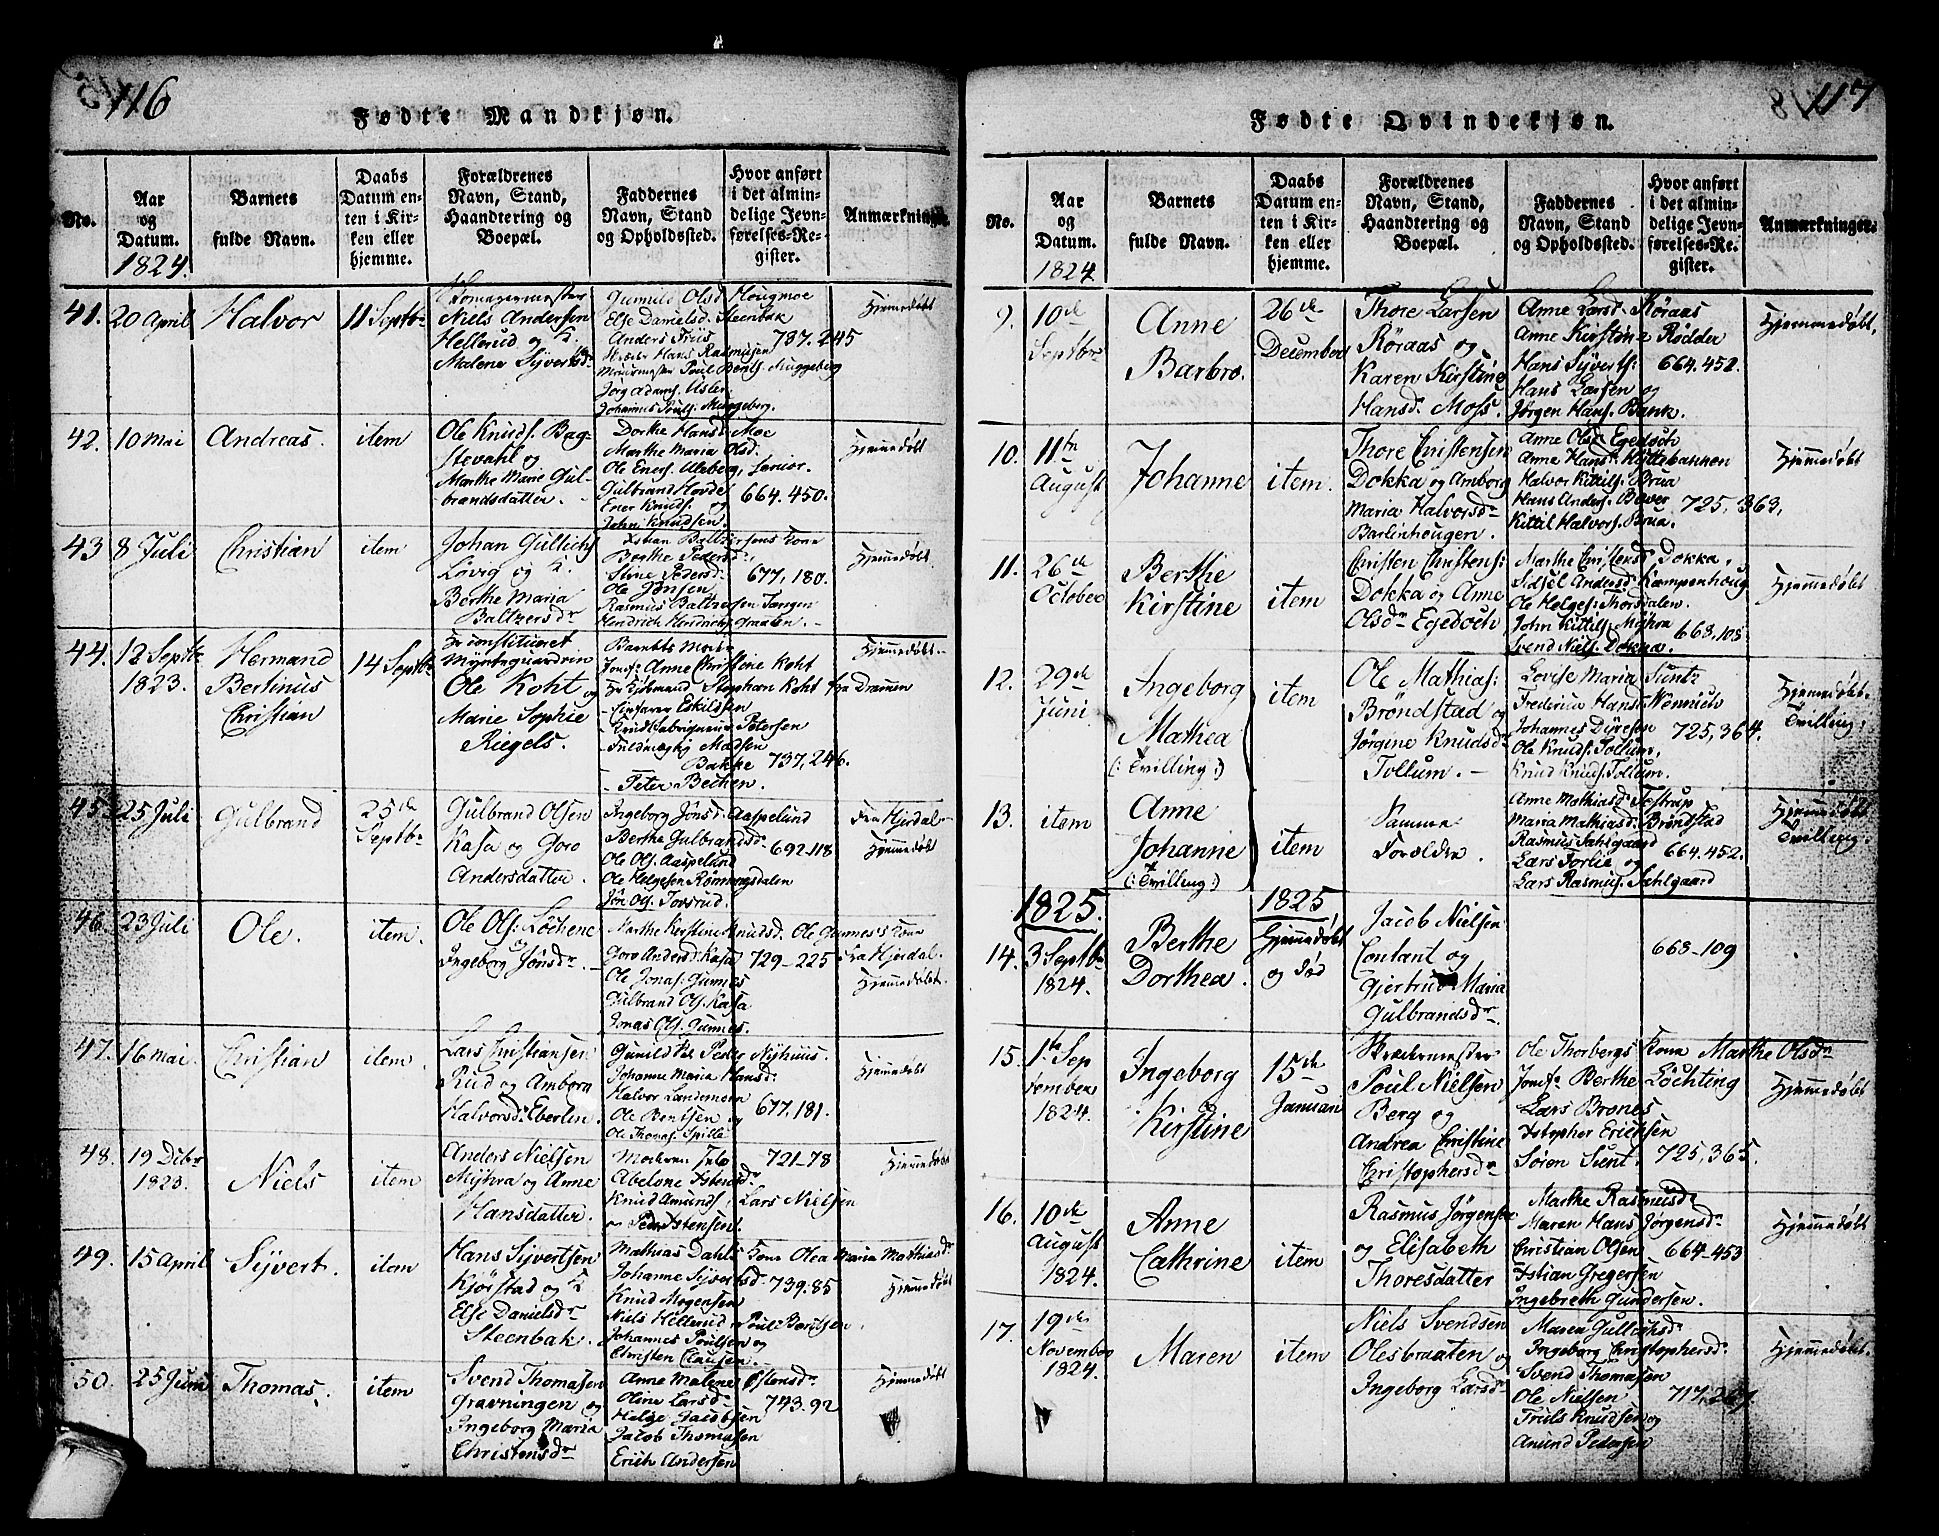 116
Fødte Mandkjøn.
No.
Aar
og
Datum.
1824.
Barnets
fulde Navn.
Daabs
Datum en-
ten i Kir-
ken eller
hjemme.
Forældrenes
Navn, Stand,
Haandtering og
Boepæl.
Faddernes
Navn, Stand
og Opholdssted.
Hvor anført
i det almin-
delige Jevn-
førelses-Re-
gister.
Anmærkninger.
41.
20 April
Halvor
11 Septbr
Niels Andersen
Hellerud og K.
Malene Sijvertsdr
Gunild Olsd. Hougmoe
Else Danielsd. Steenbak
Anders Friis
Hans Rasmusen
Muurmester Poul Berits. Muggeberg
Jørg Adams. Usler
Johannes Pouls. Muggeberg.
737.245
Hjemmedøbt
42.
10 Mai
Andreas.
item
Ole Knuds. Bag-
stevahl og
Marthe Marie Gul-
brandsdatter.
Dorthe Hansd. Moe
Marthe Maria Olsd.
Ole Eners. Aleberg, Senior.
Gulbrand Hovde
Ener Knuds. og
John Knudsen.
664.450.
Hjemmedøbt
43
8 Juli
Christian
item
Johan Gullichs
Løvig og K.
Berthe Maria
Baltzersdr
Baltzersens Kone
Berthe Pedersd.
Stine Pedersd.
Ole Jonsen
Rasmus Baltzersen Tangen
Hendrich Hendrichs. Graalen.
677,180.
Hjemmedøbt
44.
12 Septbr
1823.
Hermand
Bertinus
Christian
14 Septbr
Hr constitueret
Ole Koht og
Marie Sophie
Riegels.
Barnets Moder
Jomf. Anne Christine Koht
Hr Kjøbmand Stephan Koht fra Drammen
Eskildsen
Petersen
Fuldmægtig Madsen
Bakke
Peter Bechen.
737,246.
Hjemmedøbt.
45.
25 Juli
Gulbrand
25de
Septbr
Gulbrand Olsen
Kasa og Goro
Andersdatter.
Ingeborg Jonsd. Aaspelund
Berthe Gulbrandsd.
Ole Ols. Aaspelund
Ole Helgesen Rønningsdalen
Jon Ols. Tovsrud.
692.118
Fra Hjerdal
Hjemmedøbt
46.
23 Juli
Ole.
item.
Ole Ols. Løchene
Ingeborg Jonsdr.
Marthe Kirstine Knudsd. Ole Gunnes's Kone
Goro Andersd. Kasa
Ole Jonas. Gunnes
Gulbrand Ols. Kasa
Jonas Ols. Gunnes.
729-225
Fra Hjerdal.
Hjemmedøbt.
47.
16 Mai.
Christian
item.
Lars Christiansen
Rud og Amborg
Halvorsdr. Eberlen.
Gunild Pal Peders Nyhuus.
Johanne Maria Hansd.
Halvor Landemoen
Ole Bentsen og
Ole Thomas. Spille
677.181.
Hjemmedøbt
48.
19 Decbr
1823.
Niels
item
Anders Nielsen
Mijhra og Anne
Hansdatter.
Abelone Istensd.
Knud Amunds. Lars Nielsen
721-78
Hjemmedøbt
49.
15 April
Sijvert.
item
Hans Sijvertsen
Kjørstad og K.
Else Danielsdr
Steenbak.
Mathias Dahls Kone Olea Maria Mathiasdr
Johanne Sijvertsd.
Knud Mogensen
Niels Hellerud, Poul Beritsen.
Johannes Poulsen og
Christen Clausen.
739.85
Hjemmedøbt
50.
25 Juni
Thomas.
item
Svend Thomasen
Gravningen og
Ingeborg Maria
Christensdr
Anne Malene Østensd.
Oline Larsd.
Helge Jacobsen
Jacob Thomasen
Erich Andersen
743.92
Hjemmedøbt
117
Fødte Qvindekjøn.
No.
Aar
og
Datum.
1824
Barnets
fulde Navn.
Daabs
Datum en-
ten i Kir-
ken eller
hjemme.
Forældrenes
Navn, Stand,
Haandtering og
Boepæl.
Faddernes
Navn, Stand
og Opholdssted.
Hvor anført
i det almin-
delige Jevn-
førelses-Re-
gister.
Anmærkninger.
9.
10de
Septbr
Anne
Barbro.
26de
December
Thore Larsen
Røraas og
Karen Kirstine
Hansd. Moss.
Anne Larsd. Røraas
Anne Kirstine Rødder
Hans Sijverts.
Hans Larsen og
Jørgen Hans. Bank.
664.452.
Hjemmedøbt.
10.
11te
August
Johanne
item.
Thore Christensen
Dokka og Amborg
Maria Halvorsdr
Barlinhougen.
Anne Olsd. Egedoch
Anne Hansd. Hyttebannen
Halvor Kittils. Brua
Hans Anders. Bever
Kittil Halvors. Brua.
725,363,
Hjemmedøbt
11.
26de
October
Berthe
Kirstine
item
Christen Christens:
Dokka og Anne
Olsdr Egedoch
Marthe Christensd. Dokka.
Sidsel Andersd. Kampenhoug
Ole Helges. Thorsdalen.
John Kittils. Mijhra
Svend Niels. Dokka.
663,108
Hjemmedøbt
12.
29de
Juni
Ingeborg
Mathea
(: Tvilling :)
item
Ole Mathias:
Brøndstad og
Jørgine Knudsdr
Tollum.
Lovise Maria Suntz
Frederica Hans. Wennich
Johannes Dijresen
Ole Knuds. Tollum.
Knud Knuds. Tollum.
725,364.
Hjemmedøbt.
Tvilling.
13.
item
Anne
Johanne
(: Tvilling :)
item
Samme
Forældre.
Anne Mathiasd. Tostrup
Maria Mathiasd. Brøndstad
Rasmus Sahlgaard
Lars Torlie og
Lars Rasmus. Sahlgaard
664.452.
Hjemmedøbt
Tvilling.
1825.
14.
3 Septbr
1824.
Berthe
Dorthea.
1825
Hjemmedøbt
og død
Jacob Nielsen
Contant og
Gjertrud Maria
Gulbrandsdr.
663-109
15.
1te Sep
tember
1824.
Ingeborg
Kirstine
15de
Januari
Skrædermester
Poul Nielsen
Berg og
Andrea Christine
Christophersdr
Ole Thorbergs Kone Marthe Olsdr
Jomfr Berthe Løchting
Lars Brones
Istopher Ericksen
Søren Sient.
725,365.
Hjemmedøbt
16.
10de
August
1824.
Anne
Cathrine
item
Rasmus Jørgensen
og Elisabeth
Thoresdatter
Marthe Rasmusd.
Maren Hans Jørgensd.
Christian Olsen
Istian Gregersen
Ingebreth Gundersen.
664-453
Hjemmedøbt
17.
19de
November
1824.
Maren
item
Niels Svendsen
Olesbraaten og
Ingeborg Larsdr
Maren Gullichsd.
Ingeborg Christophersd.
Svend Thomasen
Ole Nielsen
Truls Knudsen og
Anund Pedersen
717,267
Hjemmedøbt.